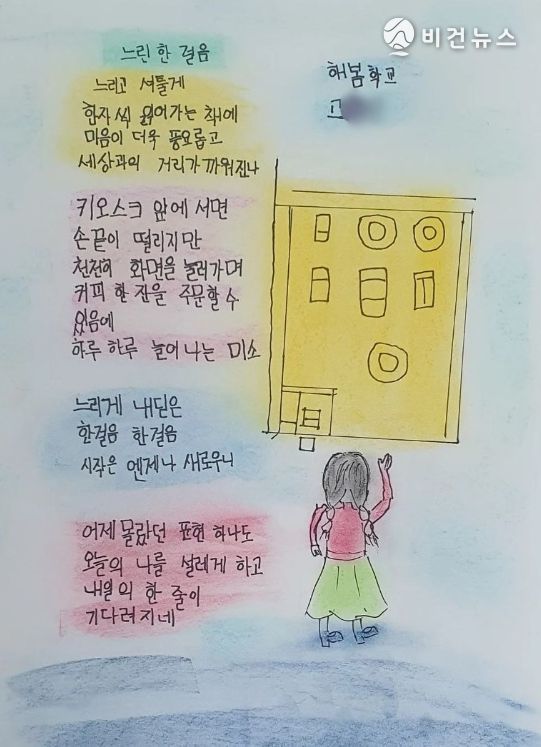 비건뉴스
느린 한 걸음
해봄학교
고
느리고 서툴게
한자씩 읽어가는 책에
마음이 더욱 풍요롭고
세상과의 거리가 까워진나
키오스크 앞에 서면
손끝이 떨리지만
천천히 화면을 눌러가며
커피 한 잔을 주문할 수
있음에
하루 하루 늘어나는 미소
느리게 내딛은
한걸음 한걸음
시작은 엔제나 새로우니
어제 몰랐던 표현 하나도
오늘의 나를 설레게 하고
내일의 한 줄이
기다려지네